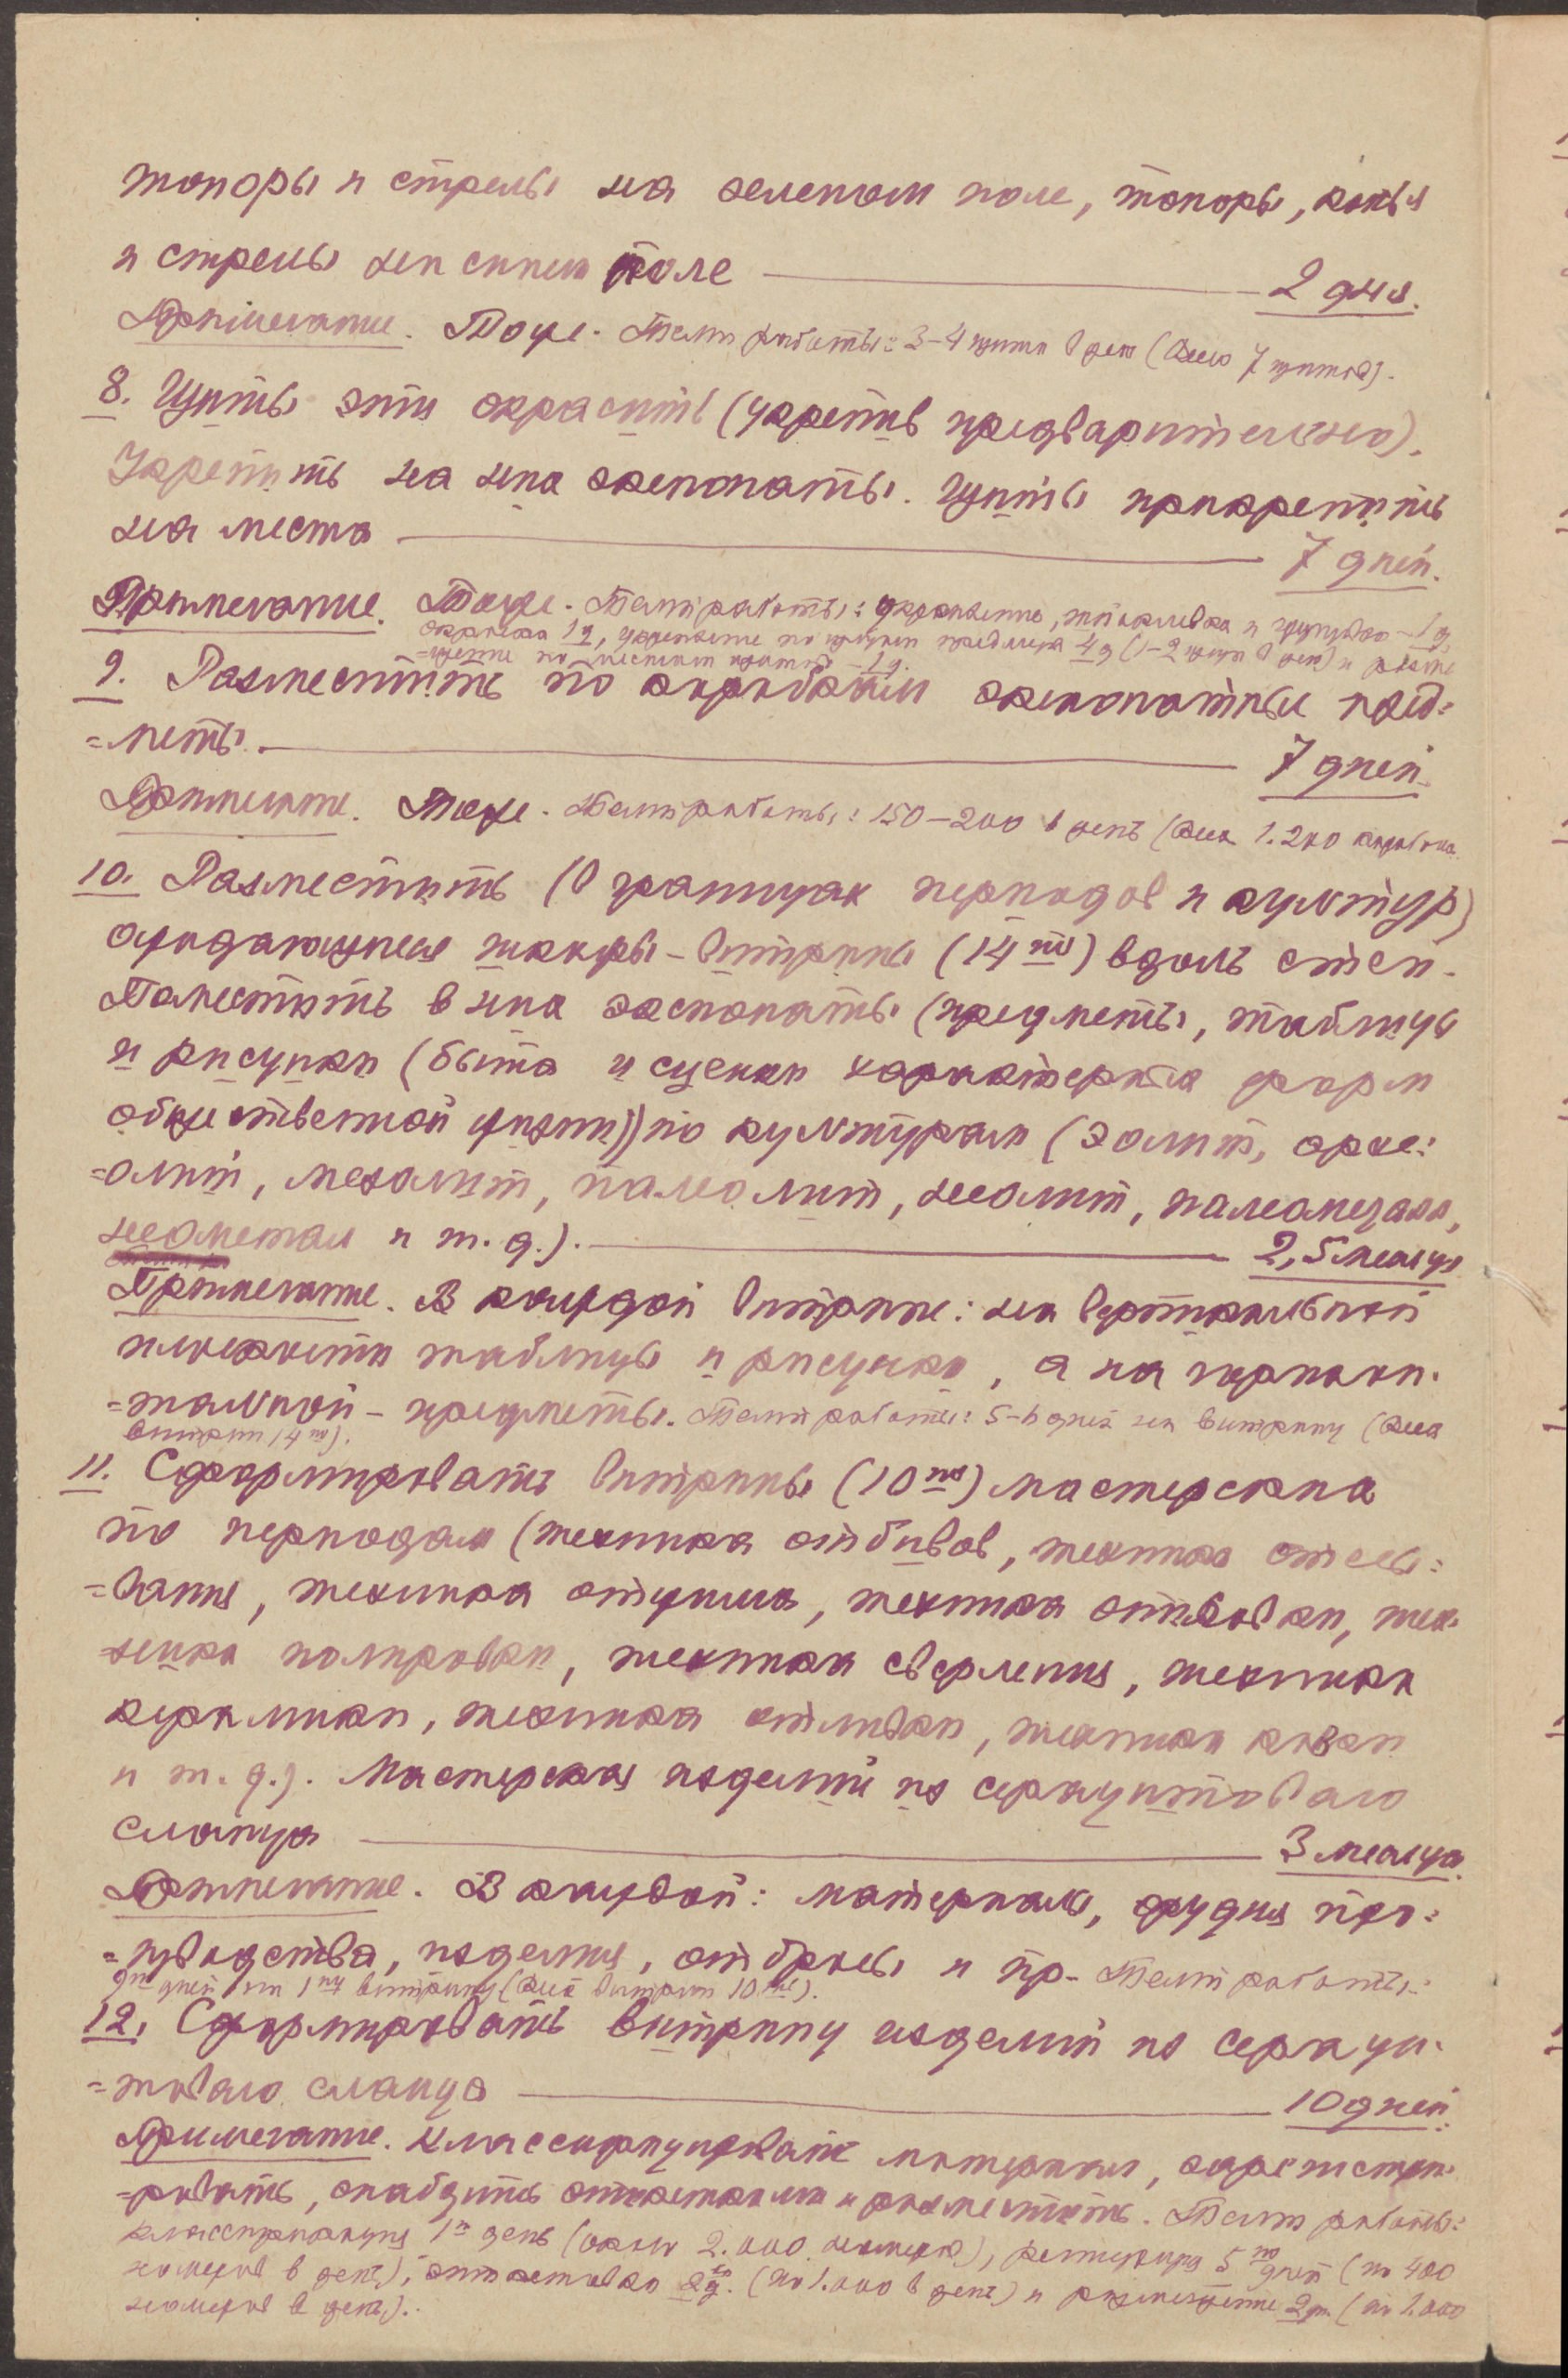 топоры и стрелы на зеленом поле, топоры, копья
и стрелы на синем поле — 2 дня.
Примечание. Тоже. Темп работы: 3-4 щита в день (всего 7 щитов).
8. Щиты эти окрасить (укрепив предварительно).
Укрепить на них экспонаты. Щиты прикрепить
на места — 7 дней.
Примечание. Тоже. Темп работы: укрепление, шпаклевка и грунтовка – 1 д.
окраска 1 д, укрепление по щитам предметов 4 д (1-2 щита в день) и разме
=щение по местам щитов – 1 д.
9. Разместить по коробкам экспонатные пред=
=меты. — 7 дней.
Примечание. Тоже. Темп работы: 150-200 в день (всех 1.200 коробков.
10. Разместить (в границах периодов и культур)
ожидающиеся шкафы-витрины (14ть) вдоль стен.
Поместить в них экспонаты (предметы, таблицы
и рисунки (быта и сценки характерных форм
общественной жизни)) по культурам (эолит, архе=
=олит, мезолит, палеолит, неолит, палеометалл,
неометал и т. д.). — 2,5 месяца
Примечание. В каждой витрине: на вертикальной
плоскости таблицы и рисунки, а на горизон=
=тальной – предметы. Темп работы: 5-6 дней на витрину (всех
витрин 14ть).
11. Сформировать витрины (10ть) мастерских
по периодам (техника отбивов, техника отесы=
=вания, техника отжима, техника отшлифовки, тех=
ника полировки, техника сверления, техника
керамики, техника отливки, техника ковки
и т. д.). Мастерская изделий из серицитоваго
сланца — 3 месяца.
Примечание. В каждой: материалы, орудия про=
=изводства, изделия, отбросы и пр. Темп работы:
9ть дней на 1ну витрину (всех витрин 10ть).
12. Сформировать витрину изделий из серици=
=товаго сланца — 10 дней.
Примечание. Классифицировать материал, зарегистри=
=ровать, снабдить этикетками и разместить. Темп работы:
классификация 1н день (около 2.000 номеров), регистрация 5ть дней (по 400
номеров в день), этикетовка 2 д. (по 1.000 в день) и размещение 2 дн. (по 1.000
номеров в день).